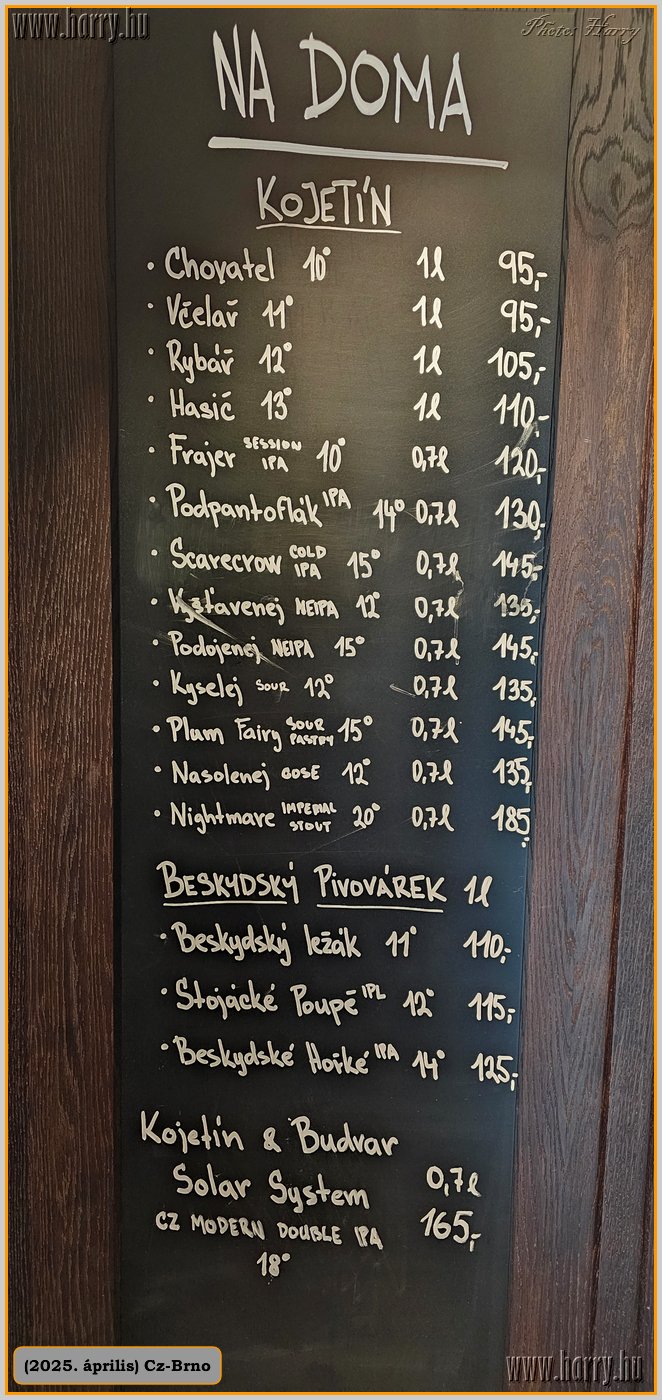 www.harry.hu
Photos Harry
NA DOMA
KOJETÍN
• Chovatel 10° 1l 95,-
• Včelař 11° 1l 95,-
• Rybář 12° 1l 105,-
• Hasič 13° 1l 110,-
• Frajer SESSION IPA 10° 0,7l 120,-
• Podpantoflák IPA 14° 0,7l 130,-
• Scarecrow COLD IPA 15° 0,7l 145,-
• Kyšťavenej NEIPA 12° 0,7l 135,-
• Podojenej NEIPA 15° 0,7l 145,-
• Kyselej SOUR 12° 0,7l 135,-
• Plum Fairy SOUR PASTRY 15° 0,7l 145,-
• Nasolenej GOSE 12° 0,7l 135,-
• Nightmare IMPERIAL STOUT 20° 0,7l 185,-
BESKYDSKÝ PIVOVÁREK 1l
• Beskydský ležák 11° 110,-
• Stojácké Poupě IPL 12° 115,-
• Beskydské Hořké IPA 14° 125,-
Kojetín & Budvar
Solar System 0,7l
CZ MODERN DOUBLE IPA 165,-
18°
(2025. április) Cz-Brno
www.harry.hu